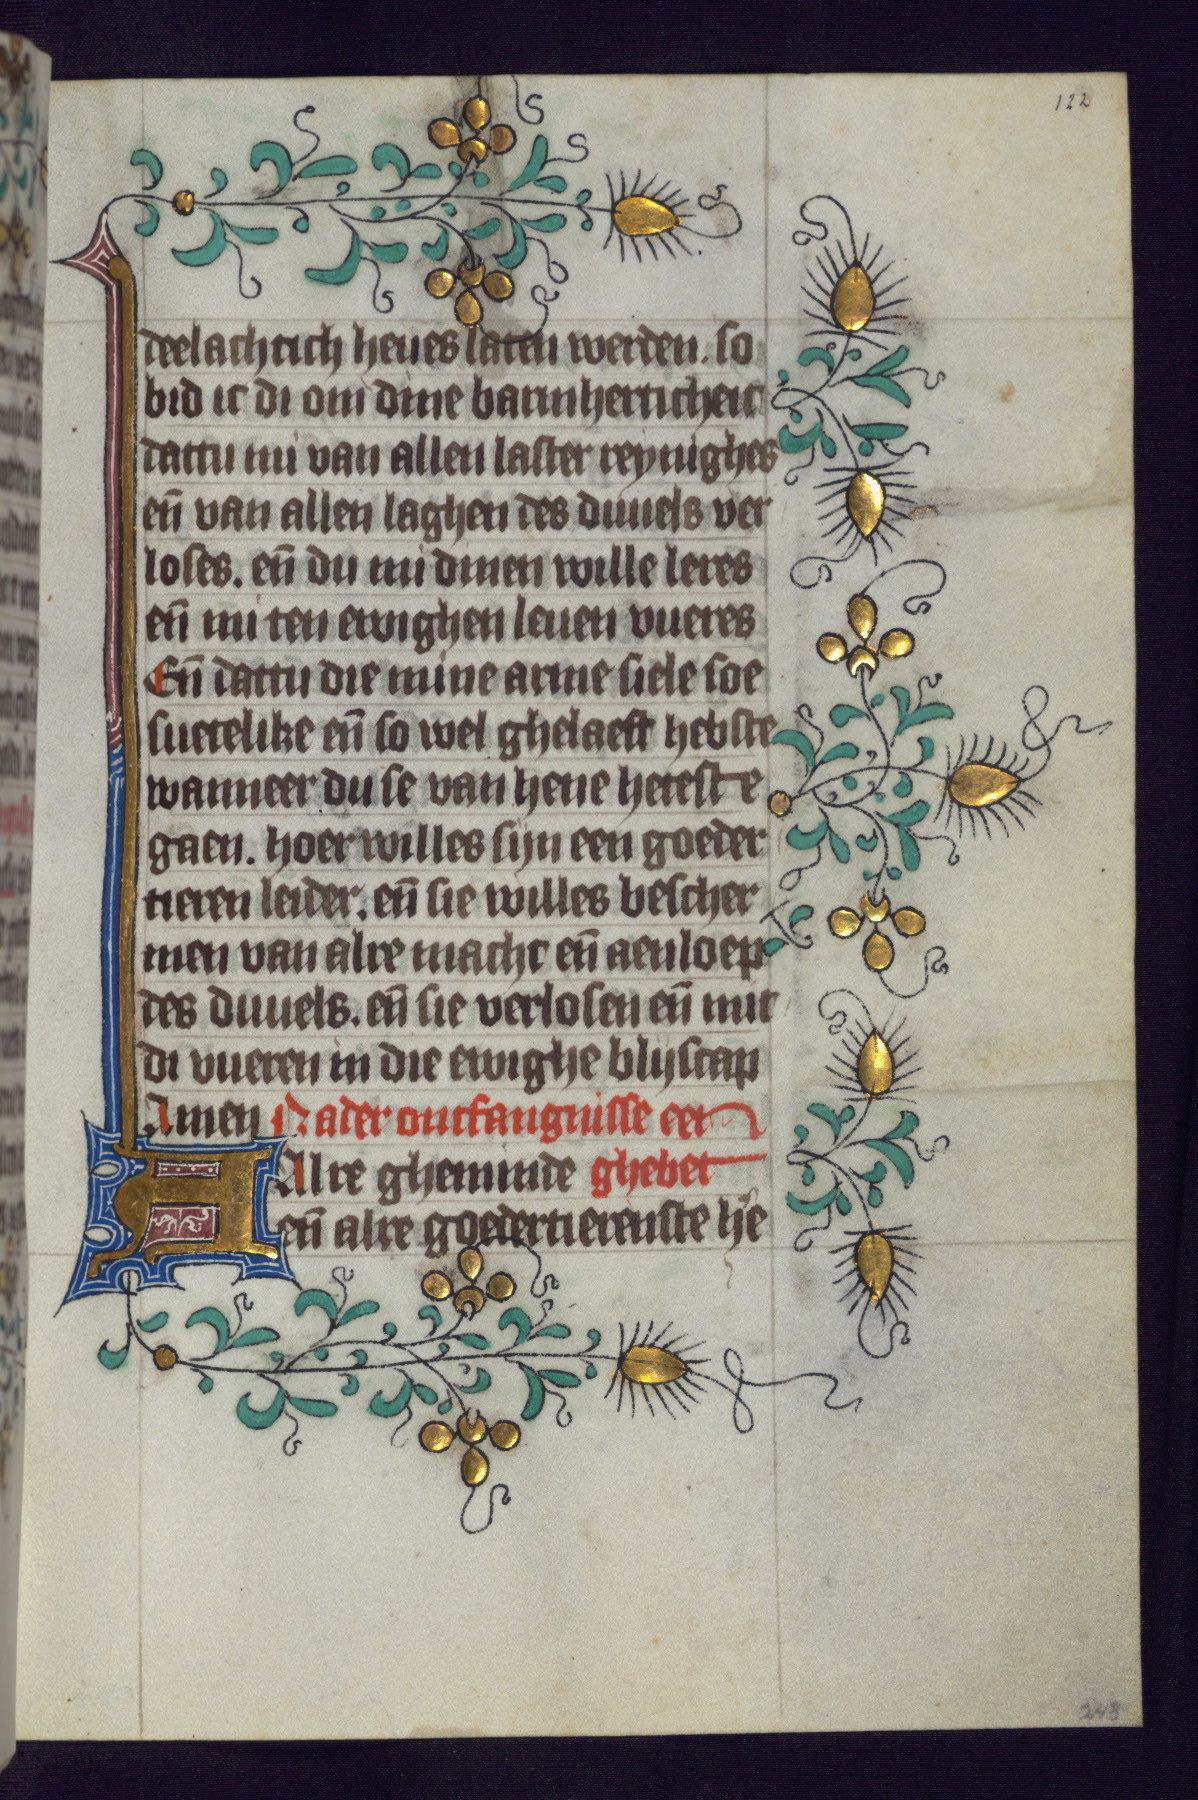 122
deelachtich heues laten werden. so
bid ic di om dine barmherticheit
dattu mi van allen laster reynighes
en̄ van allen laghen des duuels ver
loses. en̄ du mi dinen wille leres
en̄ mi ten ewighen leuen vueres
En̄ dattu die mine arme siele soe
suetelike en̄ so wel ghelaeft hebste
wanneer du se van hene hetest e
gaen. hoer willes sijn een goeder
tieren leider. en̄ sie willes bescher
men van alre macht en̄ aenloep
des duuels. en̄ sie verlosen en̄ mit
di vueren in die ewighe blijscap
Amen Nader ontfangnisse een
Alre gheminde ghebet
en̄ alre goedertierenste he᷑
243